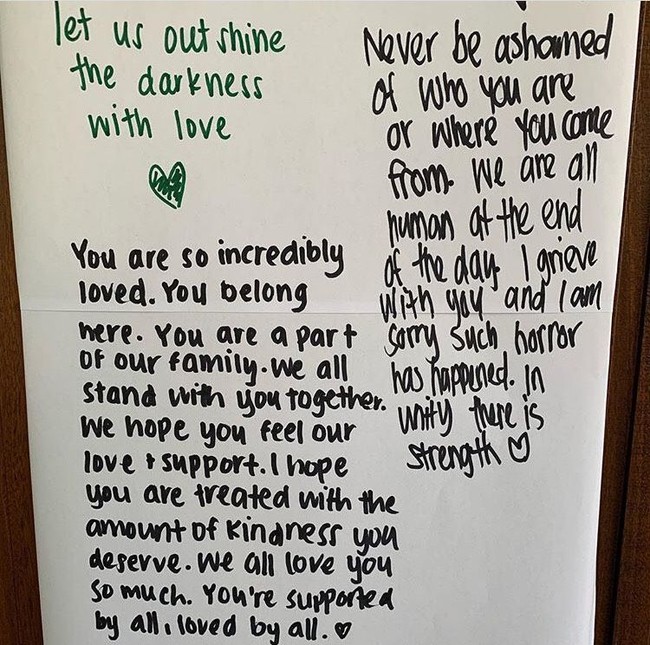 let us outshine
the darkness
with love
You are so incredibly
loved. You belong
here. You are a part
of our family. We all
stand with you together.
We hope you feel our
love + support. I hope
you are treated with the
amount of kindness you
deserve. We all love you
so much. You're supported
by all, loved by all. ♡
Never be ashamed
of who you are
or where you come
from. We are all
human at the end
of the day. I grieve
with you and I am
sorry such horror
has happened. In
unity there is
strength ♡